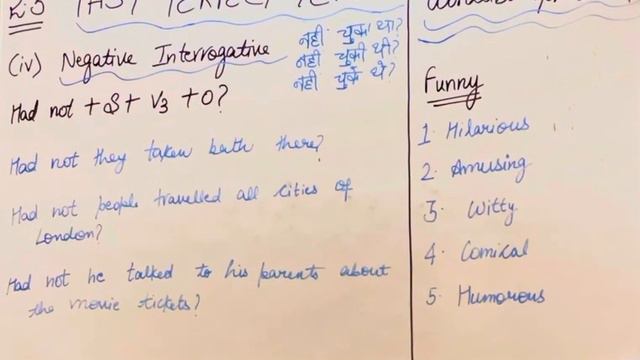 (iv) Negative Interrogative
नहीं चुका था?
नहीं चुकी थी?
नहीं चुके थे?
Had not + S + V3 + O?
Had not they taken bath there?
Had not people travelled all cities of
London?
Had not he talked to his parents about
the movie tickets?
Funny
1. Hilarious
2. Amusing
3. Witty
4. Comical
5. Humorous